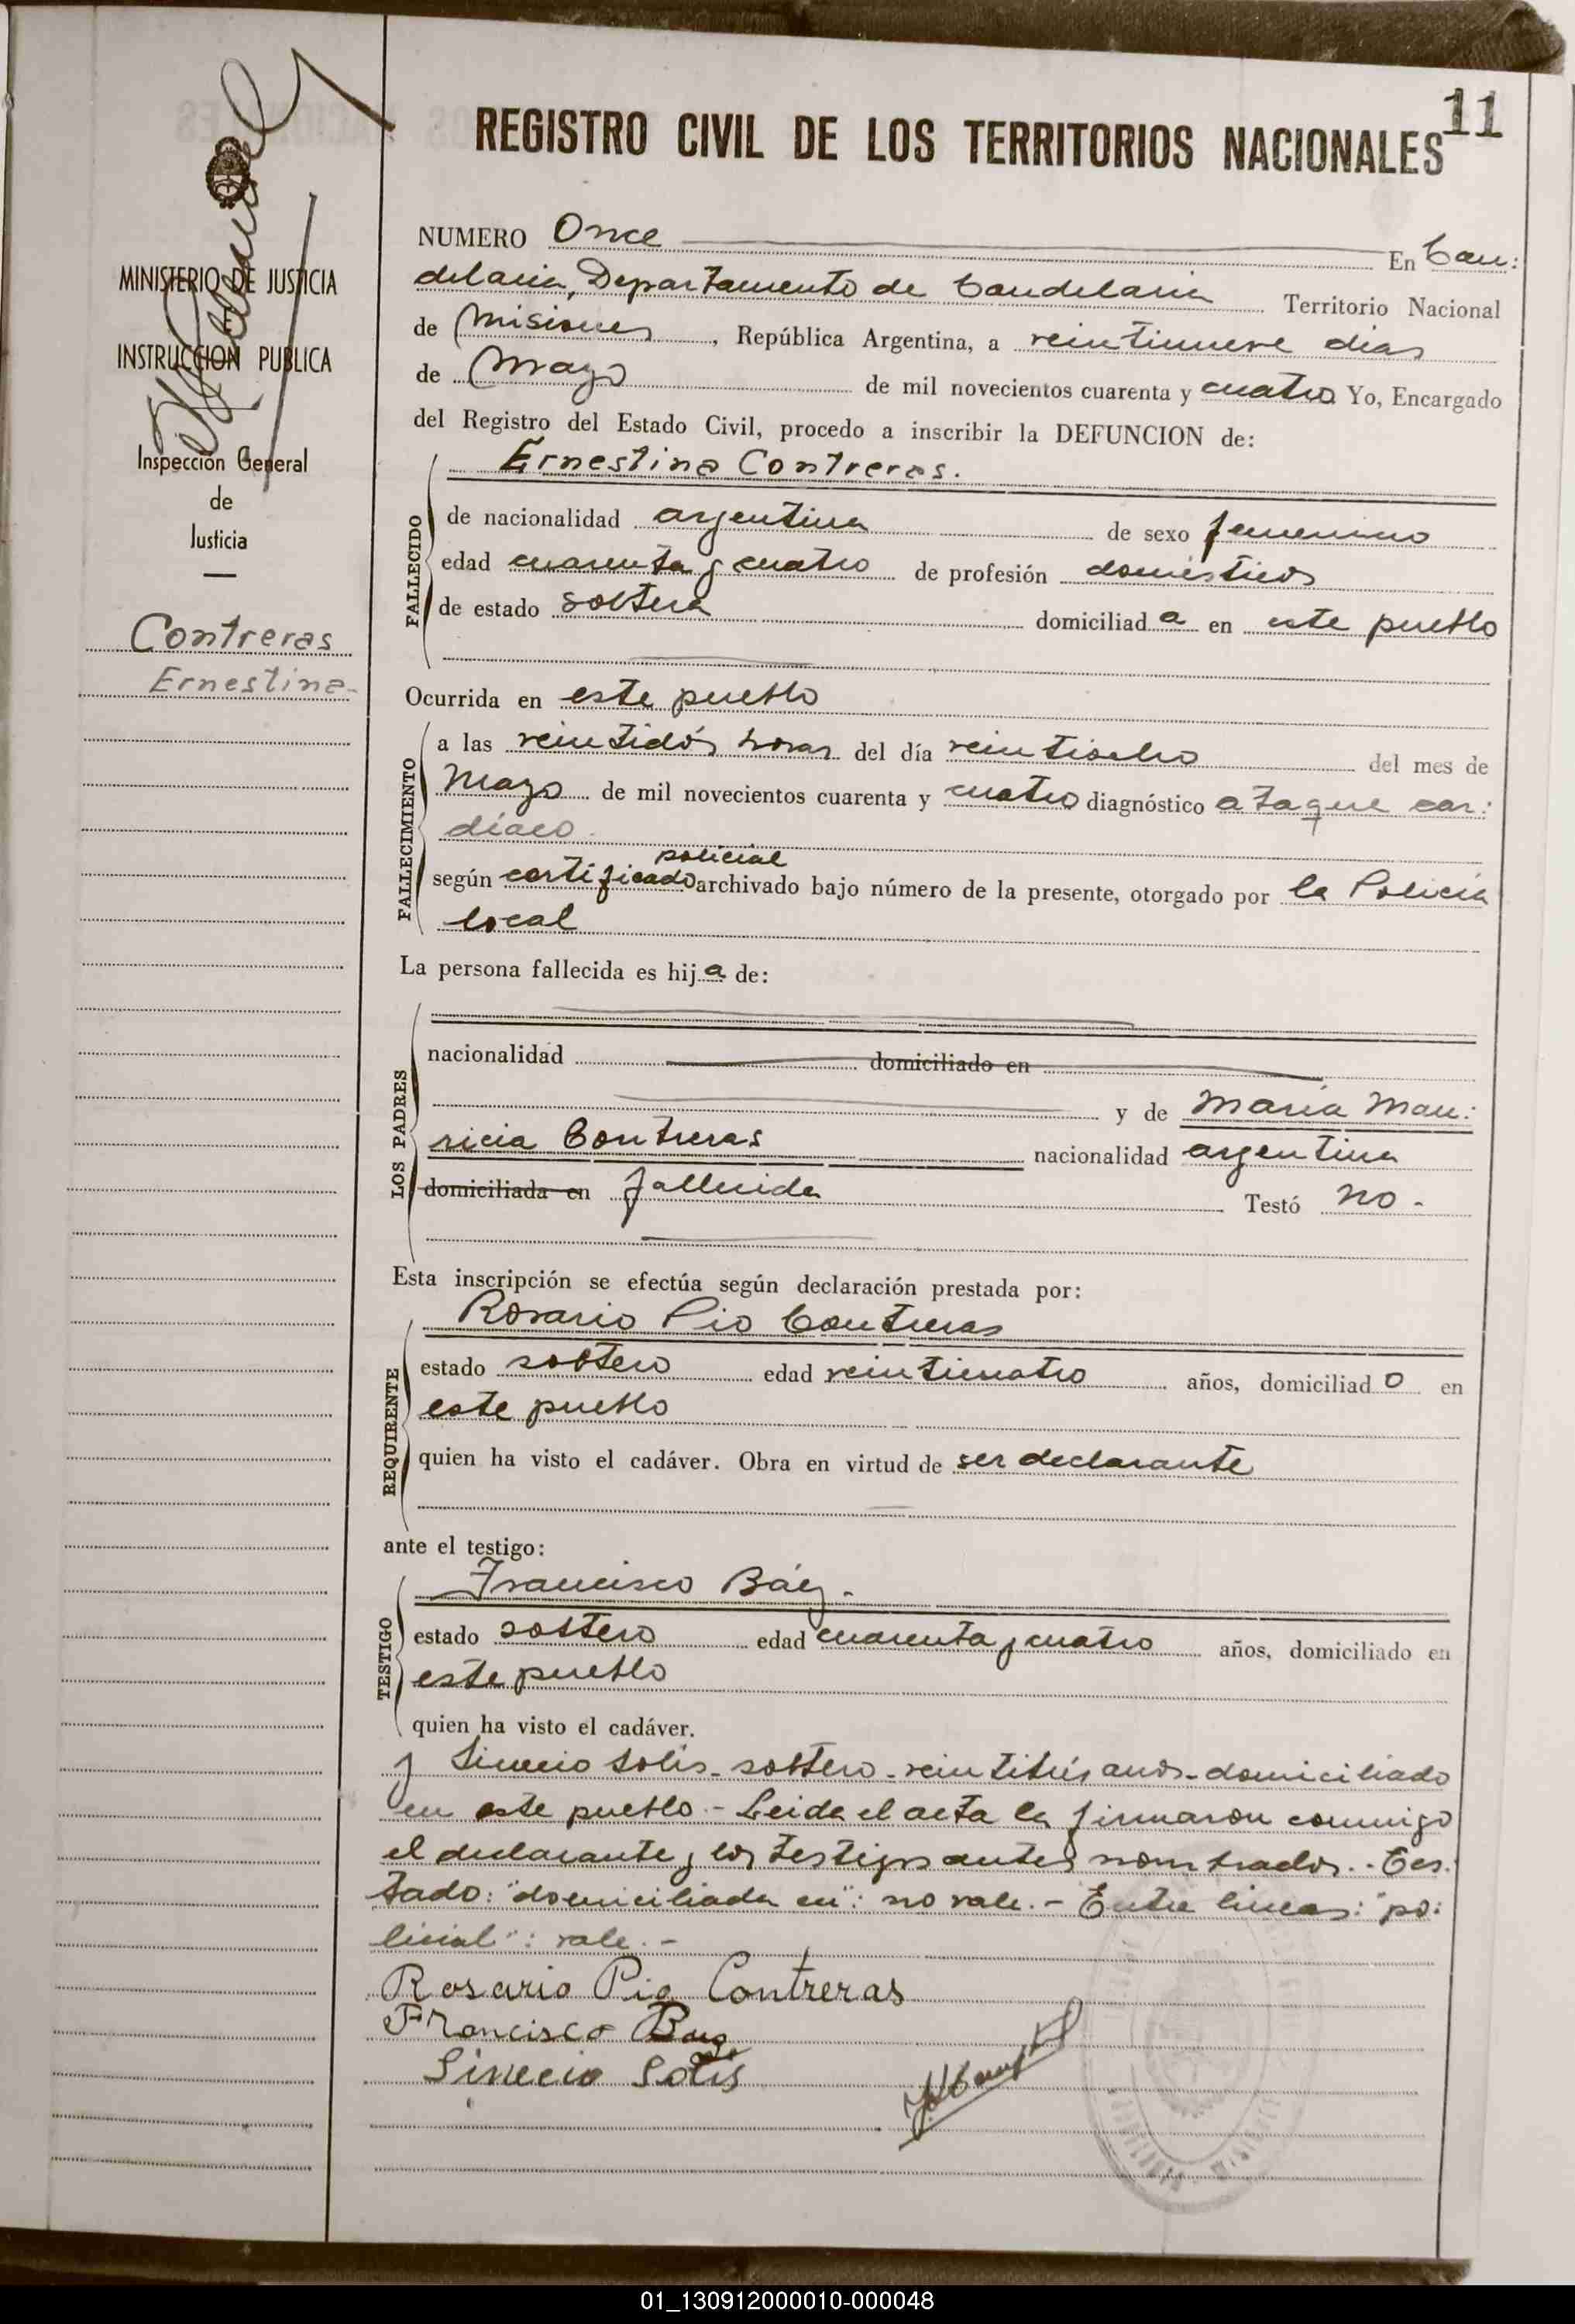 11
REGISTRO CIVIL DE LOS TERRITORIOS NACIONALES
MINISTERIO DE JUSTICIA
INSTRUCCION PUBLICA
Inspección General
de
Justicia
Contreras
Ernestina-
NUMERO Once En Can:
delaria, Departamento de Candelaria Territorio Nacional
de Misiones, República Argentina, a veintinueve días
de Mayo de mil novecientos cuarenta y cuatro Yo, Encargado
del Registro del Estado Civil, procedo a inscribir la DEFUNCION de:
Ernestina Contreras.
FALLECIDO
de nacionalidad argentina de sexo femenino
edad cuarenta y cuatro de profesión domésticos
de estado soltera domiciliad a en este pueblo
Ocurrida en este pueblo
FALLECIMIENTO
a las veintidós horas del día veintiocho del mes de
Mayo de mil novecientos cuarenta y cuatro diagnóstico ataque car:
díaco
policial
según certificado archivado bajo número de la presente, otorgado por la Policía
local
La persona fallecida es hij a de:
LOS PADRES
nacionalidad domiciliado en
y de María Mau:
ricia Contreras nacionalidad argentina
domiciliada en fallecida Testó no.
Esta inscripción se efectúa según declaración prestada por:
Rosario Pio Contreras
REQUIRENTE
estado soltero edad veinticuatro años, domiciliad o en
este pueblo
quien ha visto el cadáver. Obra en virtud de ser declarante
ante el testigo:
Francisco Báez.
TESTIGO
estado soltero edad cuarenta y cuatro años, domiciliado en
este pueblo
quien ha visto el cadáver.
y Sinecio Solís-soltero-veintitrés anos-domiciliado
en este pueblo.- Leida el acta la firmaron conmigo
el declarante y los testigos antes nombrados.- Tes:
tado: "domiciliada en": no vale.- Entre lineas: "po:
licial": vale.-
Rosario Pio Contreras
Francisco Baez
Sinecio Solis
01_130912000010-000048